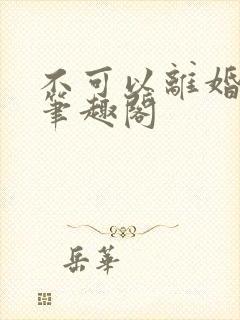 不可以離婚
筆趣閣
岳華